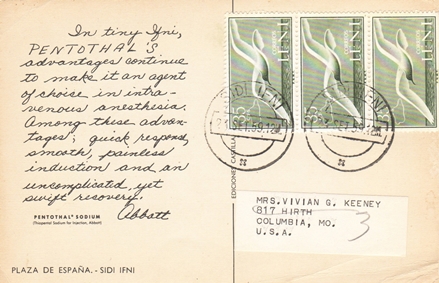 In tiny Ifni,
PENTOTHAL'S
advantages continue
to make it an agent
of choise in intra-
venous anesthesia.
Among these advan-
tages: quick response,
smooth, painless
induction and an
uncomplicated, yet
swift recovery.
Abbott
PENTOTHAL® SODIUM
(Thiopental Sodium for Injection, Abbott)
PLAZA DE ESPAÑA. - SIDI IFNI
CORREOS
IFNI
CORREOS
IFNI
CORREOS
IFNI
SIDI IFNI
MRS. VIVIAN G. KEENEY
817 HIRTH
COLUMBIA, MO.
U.S.A.
3